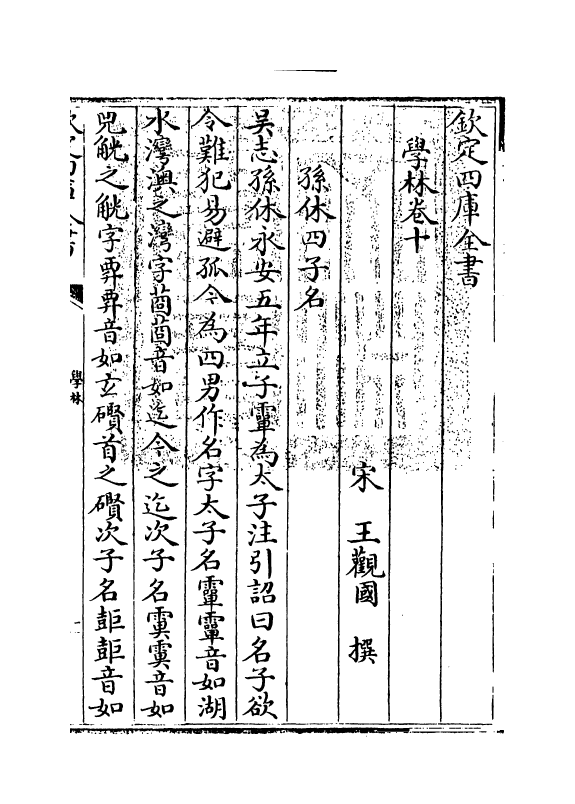 欽定四庫全書
學林卷十
宋 王觀國 撰
孫休四子名
吴志孫休永安五年立子𩅦為太子注引詔曰名子欲
令難犯易避孤今為四男作名字太子名𩅦𩅦音如湖
水灣澳之灣字莔莔音如迄今之迄次子名𩃙𩃙音如
兕觥之觥字𧟨𧟨音如玄礥首之礥次子名音如
學林
一